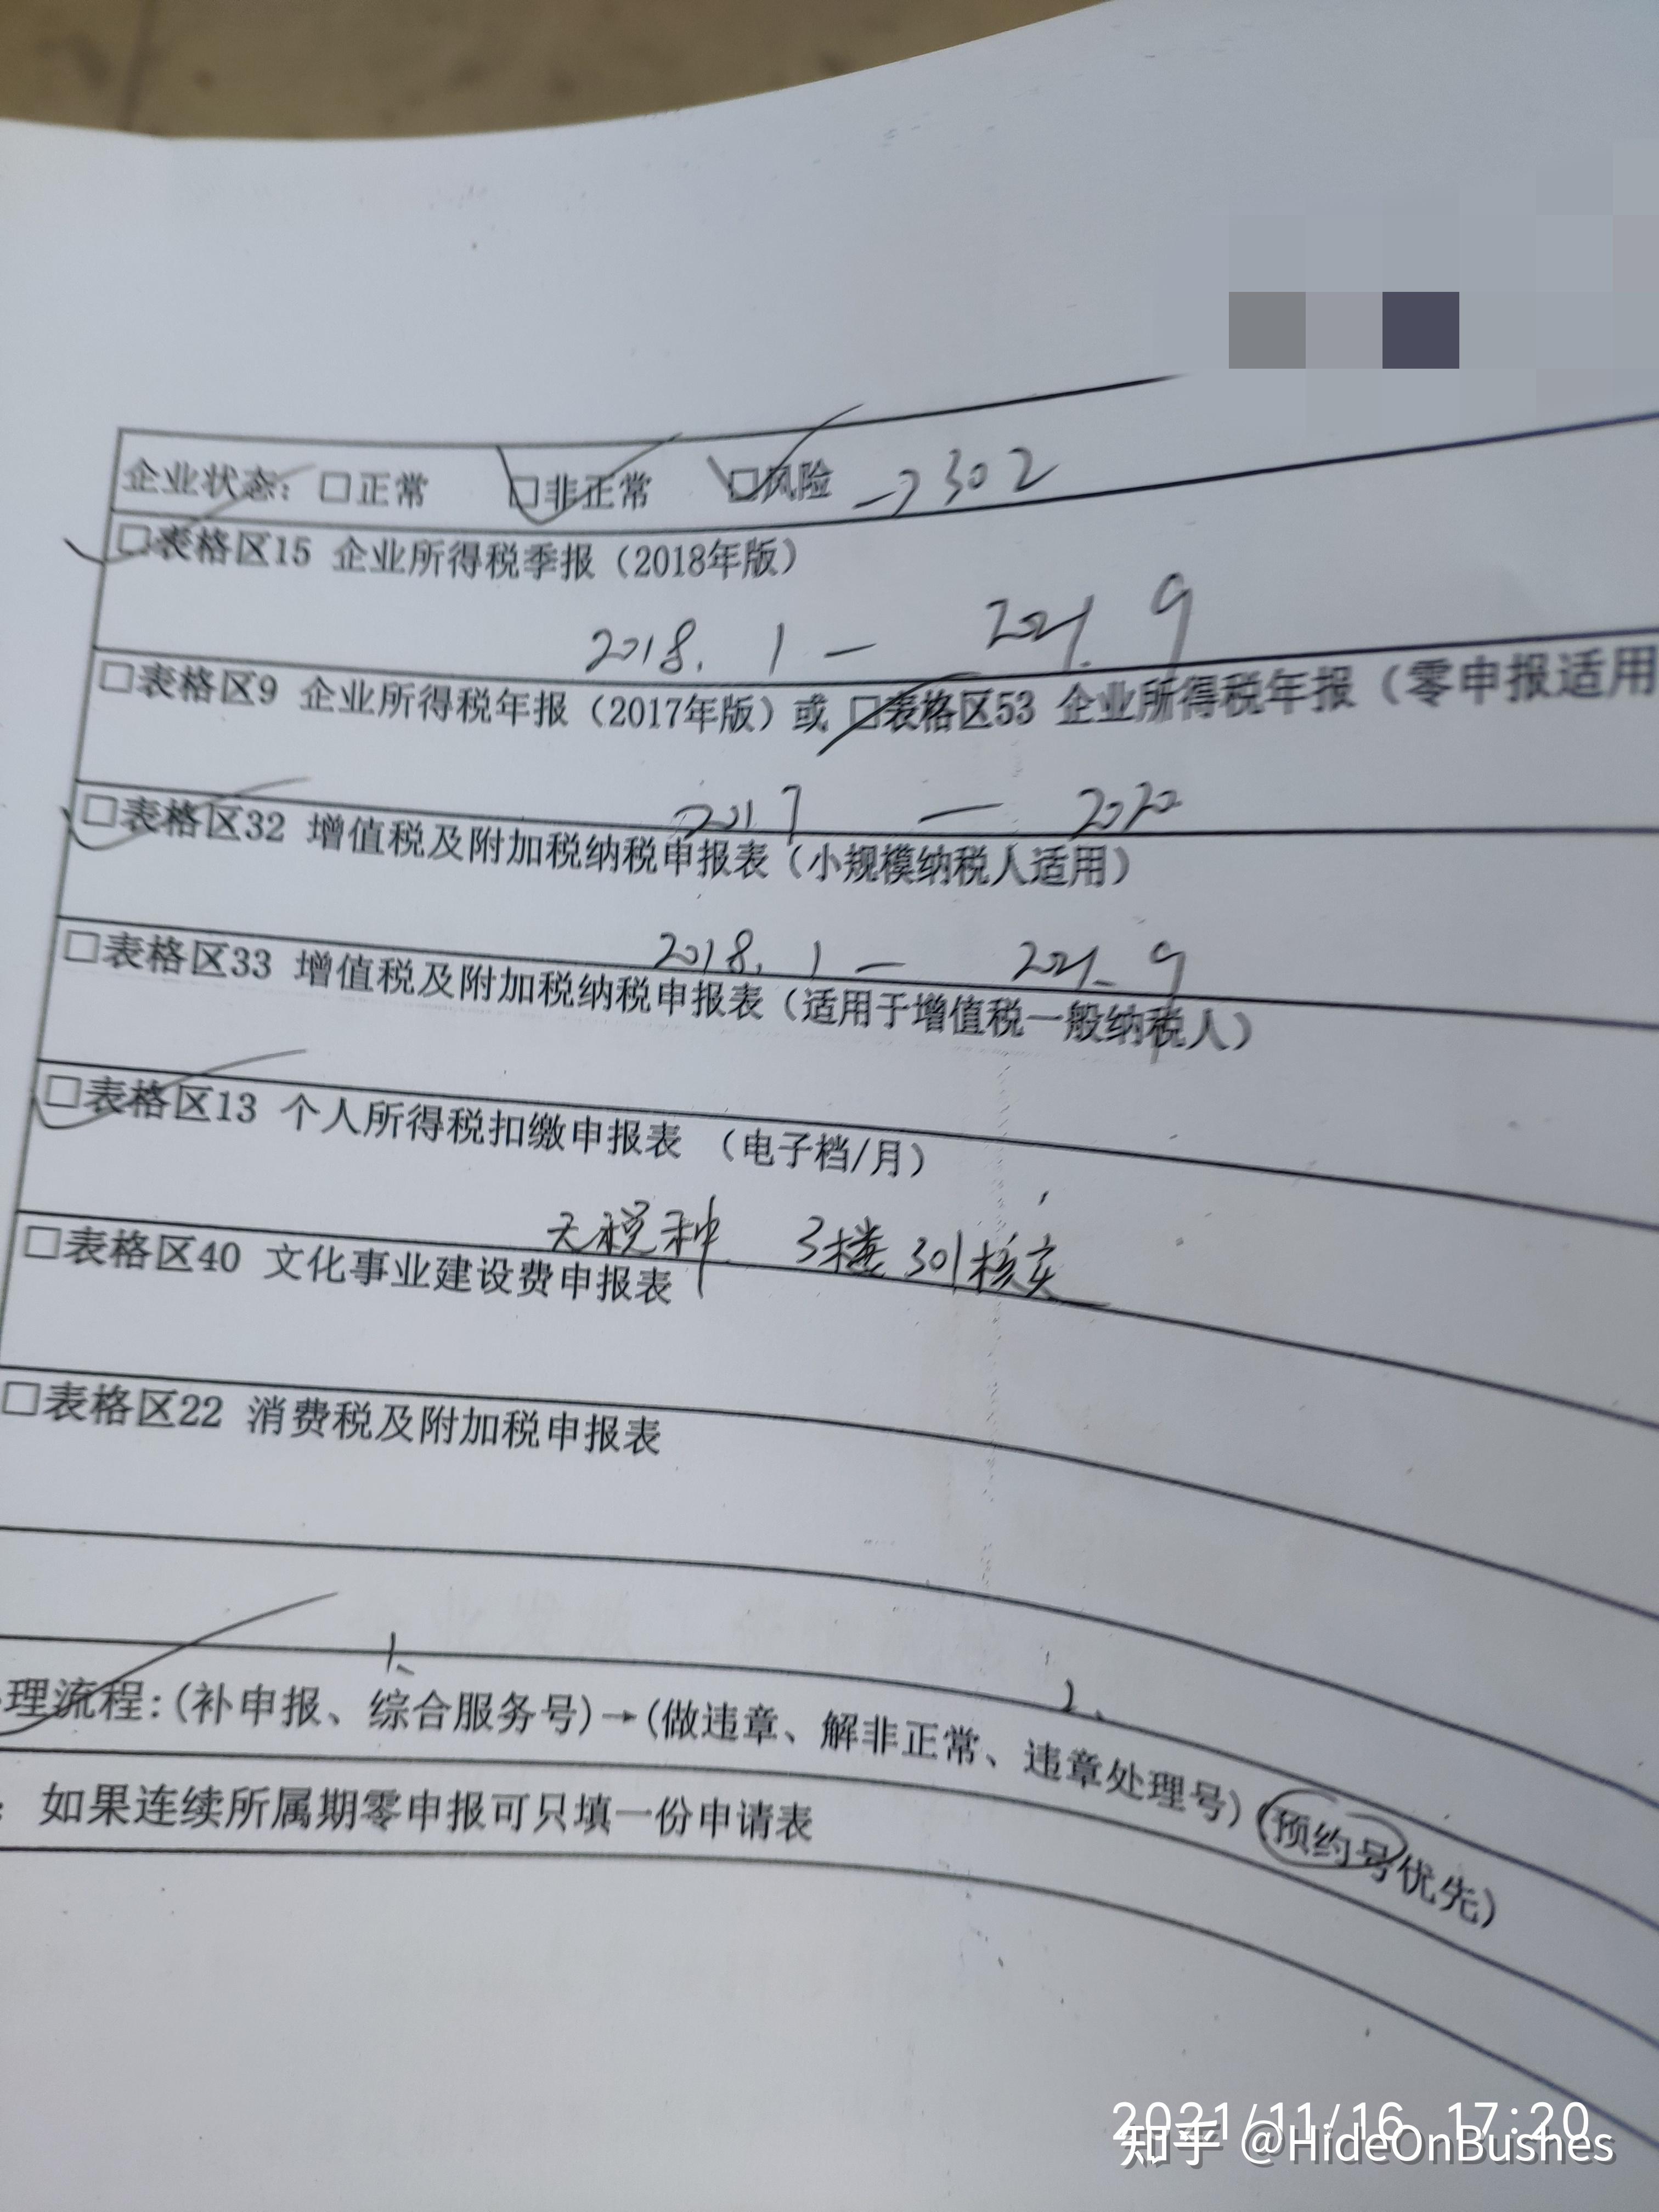 企业状态：□正常 □非正常 □风险 →302
□表格区15 企业所得税季报（2018年版）
2018.1— 2021.9
□表格区9 企业所得税年报（2017年版）或 □表格区53 企业所得税年报（零申报适用
2017 — 2020
□表格区32 增值税及附加税纳税申报表（小规模纳税人适用）
2018.1— 2021.9
□表格区33 增值税及附加税纳税申报表（适用于增值税一般纳税人）
□表格区13 个人所得税扣缴申报表 （电子档/月）
无税种 3楼301核实
□表格区40 文化事业建设费申报表
□表格区22 消费税及附加税申报表
1、 2、
理流程：(补申报、综合服务号)→(做违章、解非正常、违章处理号)(预约号优先)
：如果连续所属期零申报可只填一份申请表
2021/11/16 17:20
知乎 @HideOnBushes